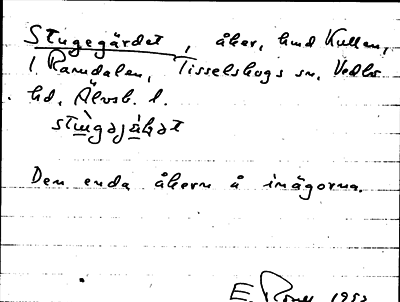 Stugegärdet, åker, hmd Kullen,
l. Ramdalen, Tisselskogs sn, Vedbo
hd, Älvsb. l.
Den enda åkern å inägorna.
E. 1952